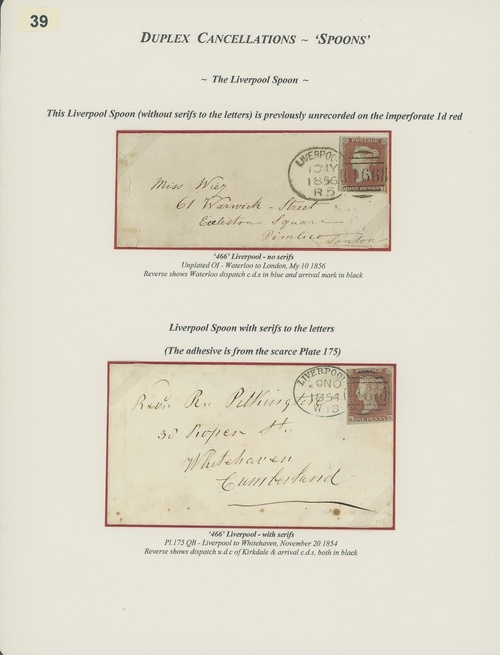 39
DUPLEX CANCELLATIONS ~ 'SPOONS'
~ The Liverpool Spoon ~
This Liverpool Spoon (without serifs to the letters) is previously unrecorded on the imperforate 1d red
LIVERPOOL
10MY
1856
R.5
POSTAGE
466
ONE PENNY
Miss
61 Warwick - Street
Eccleston Square
Pimlico
London
'466' Liverpool - no serifs
Unplated OI - Waterloo to London, My 10 1856
Reverse shows Waterloo dispatch c.d.s in blue and arrival mark in black
Liverpool Spoon with serifs to the letters
(The adhesive is from the scarce Plate 175)
LIVERPOOL
20NO
1854
W 13
POSTAGE
ONE PENNY
Revd. Pilkington
30 Roper St.
Whitehaven
Cumberland
'466' Liverpool - with serifs
Pl.175 QB - Liverpool to Whitehaven, November 20 1854
Reverse shows dispatch u.d.c of Kirkdale & arrival c.d.s, both in black